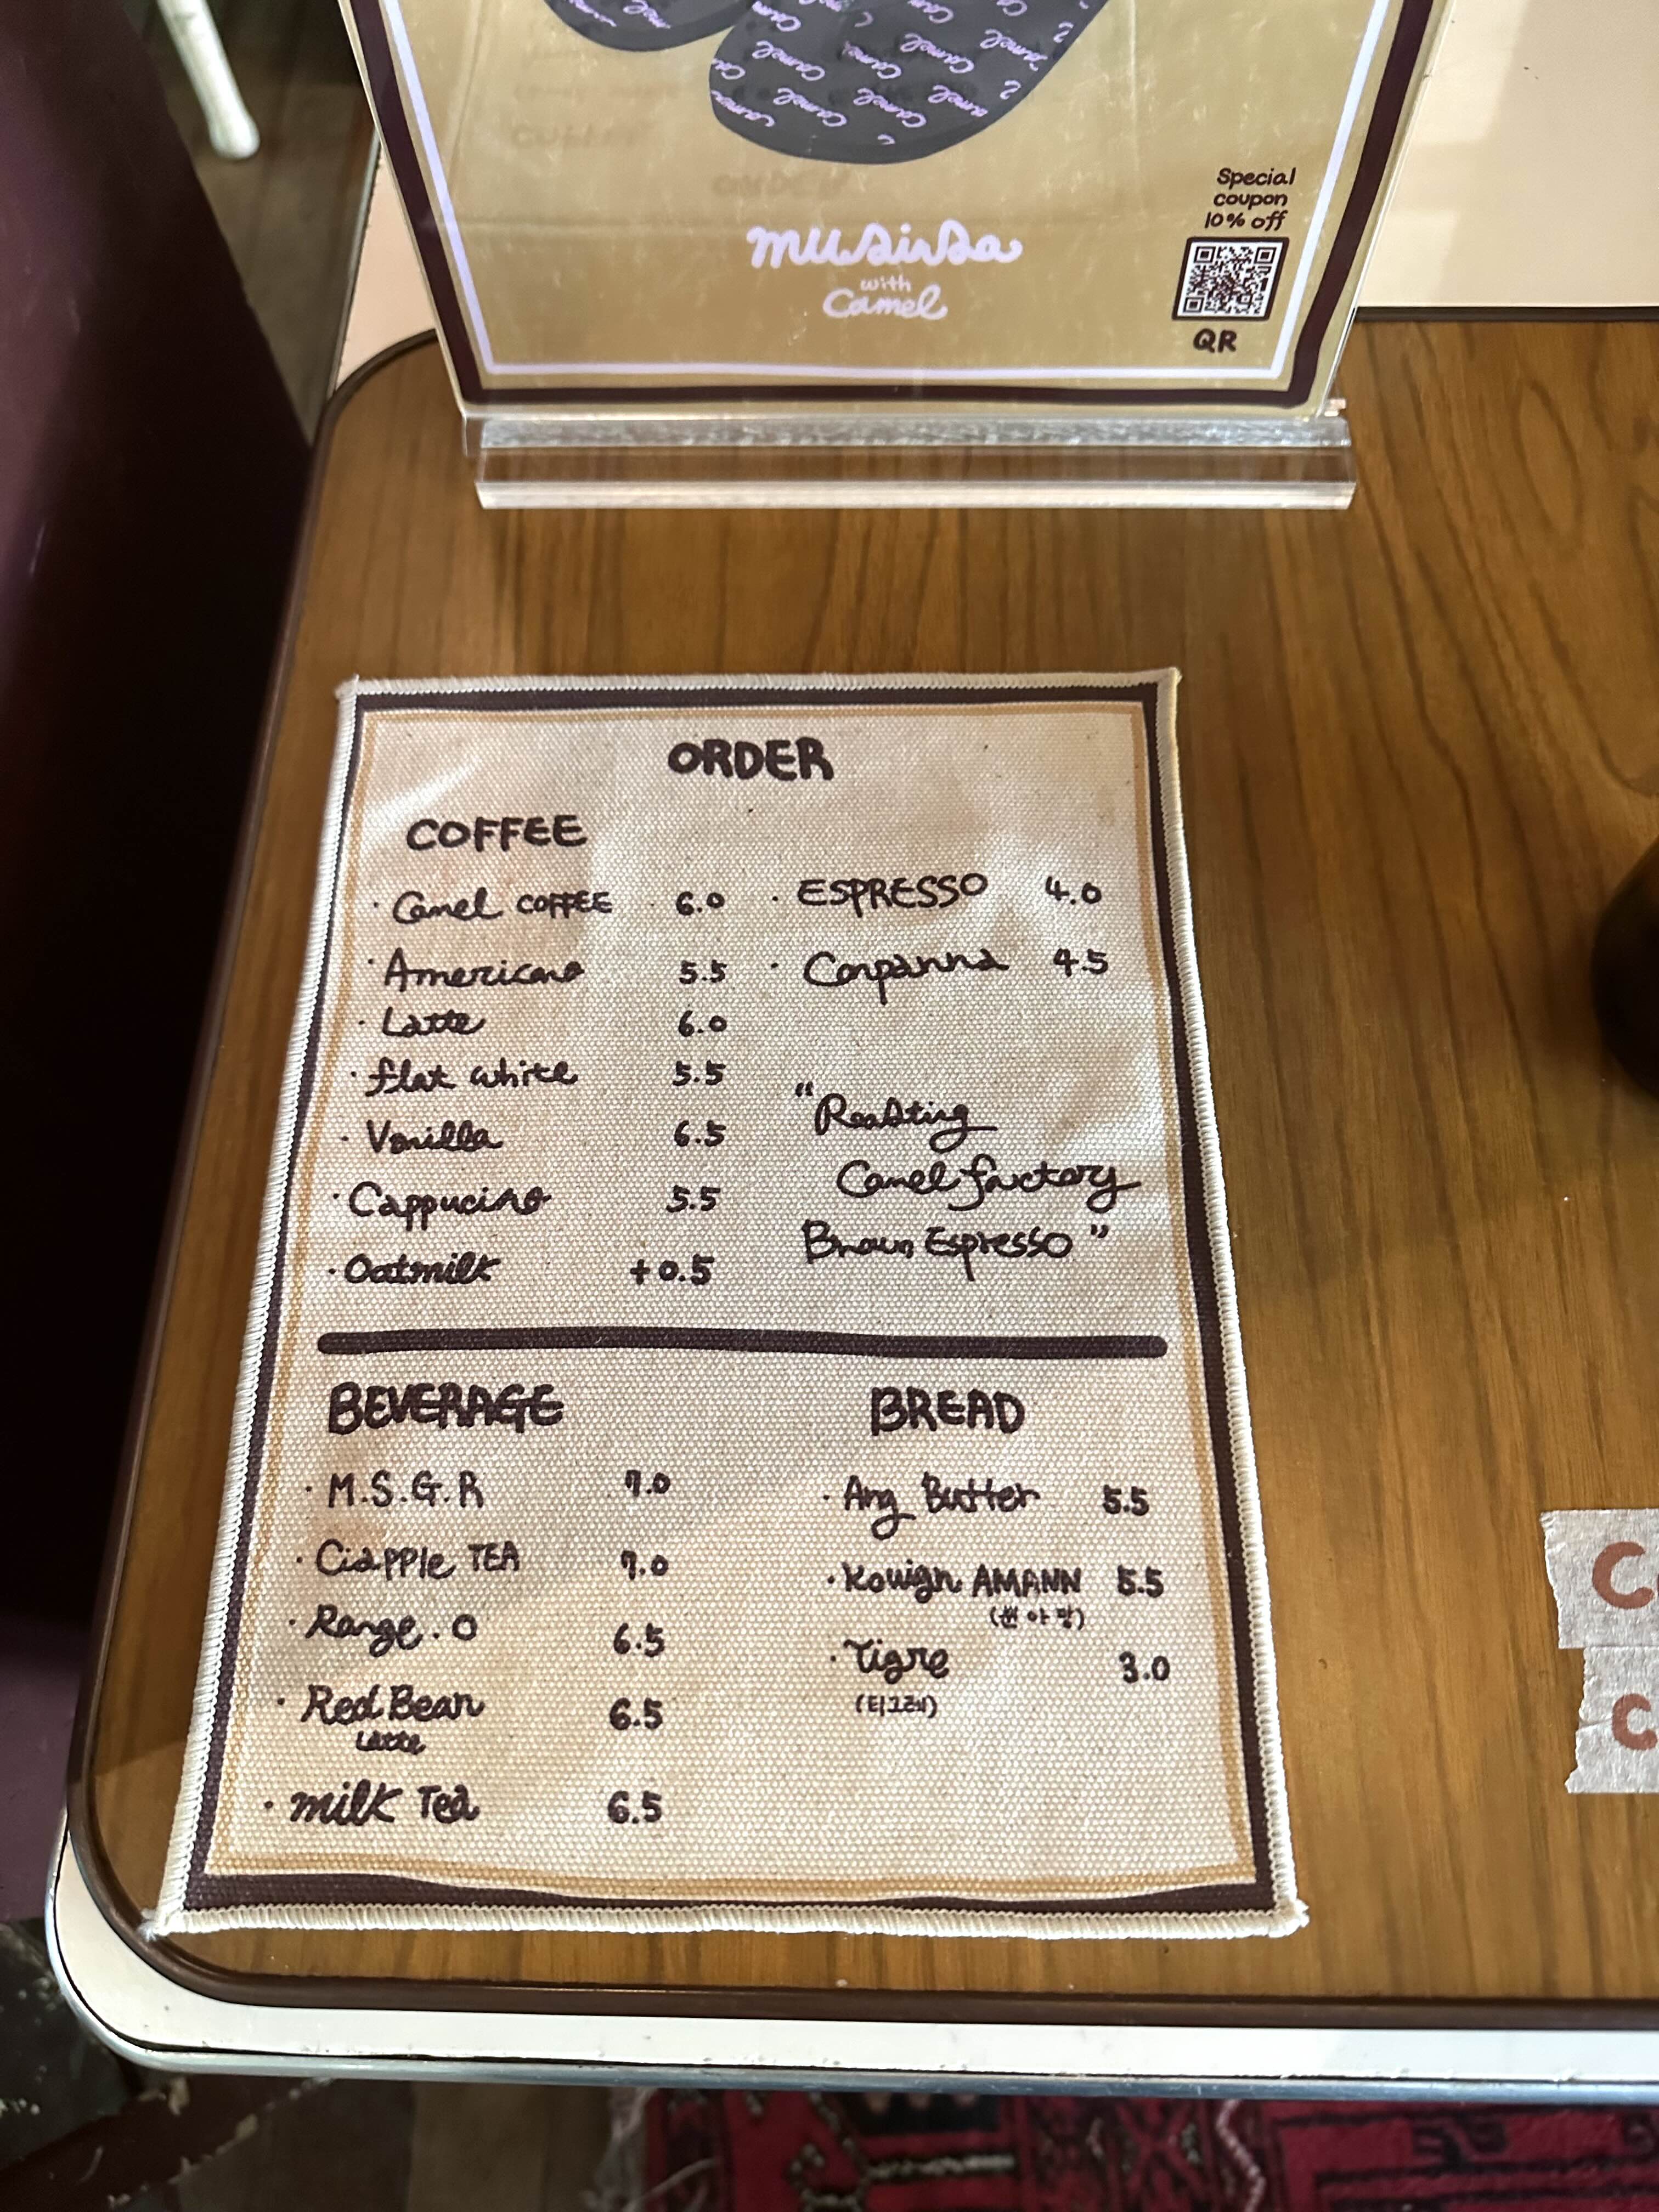 Special
coupon
10% off
musinsa
with
Camel
QR
ORDER
COFFEE
· Camel COFFEE 6.0
· Americano 5.5
· Latte 6.0
· flat white 5.5
· Vanilla 6.5
· Cappucino 5.5
· Oatmilk +0.5
· ESPRESSO 4.0
· Conpanna 4.5
"Roasting
Camel factory
Brown Espresso"
BEVERAGE
· M.S.G.R 7.0
· Ciapple TEA 7.0
· Range.O 6.5
· Red Bean 6.5
Latte
· milk Tea 6.5
BREAD
· Ang Butter 5.5
· Kouign AMANN 5.5
· Tigre 3.0
(티그레)